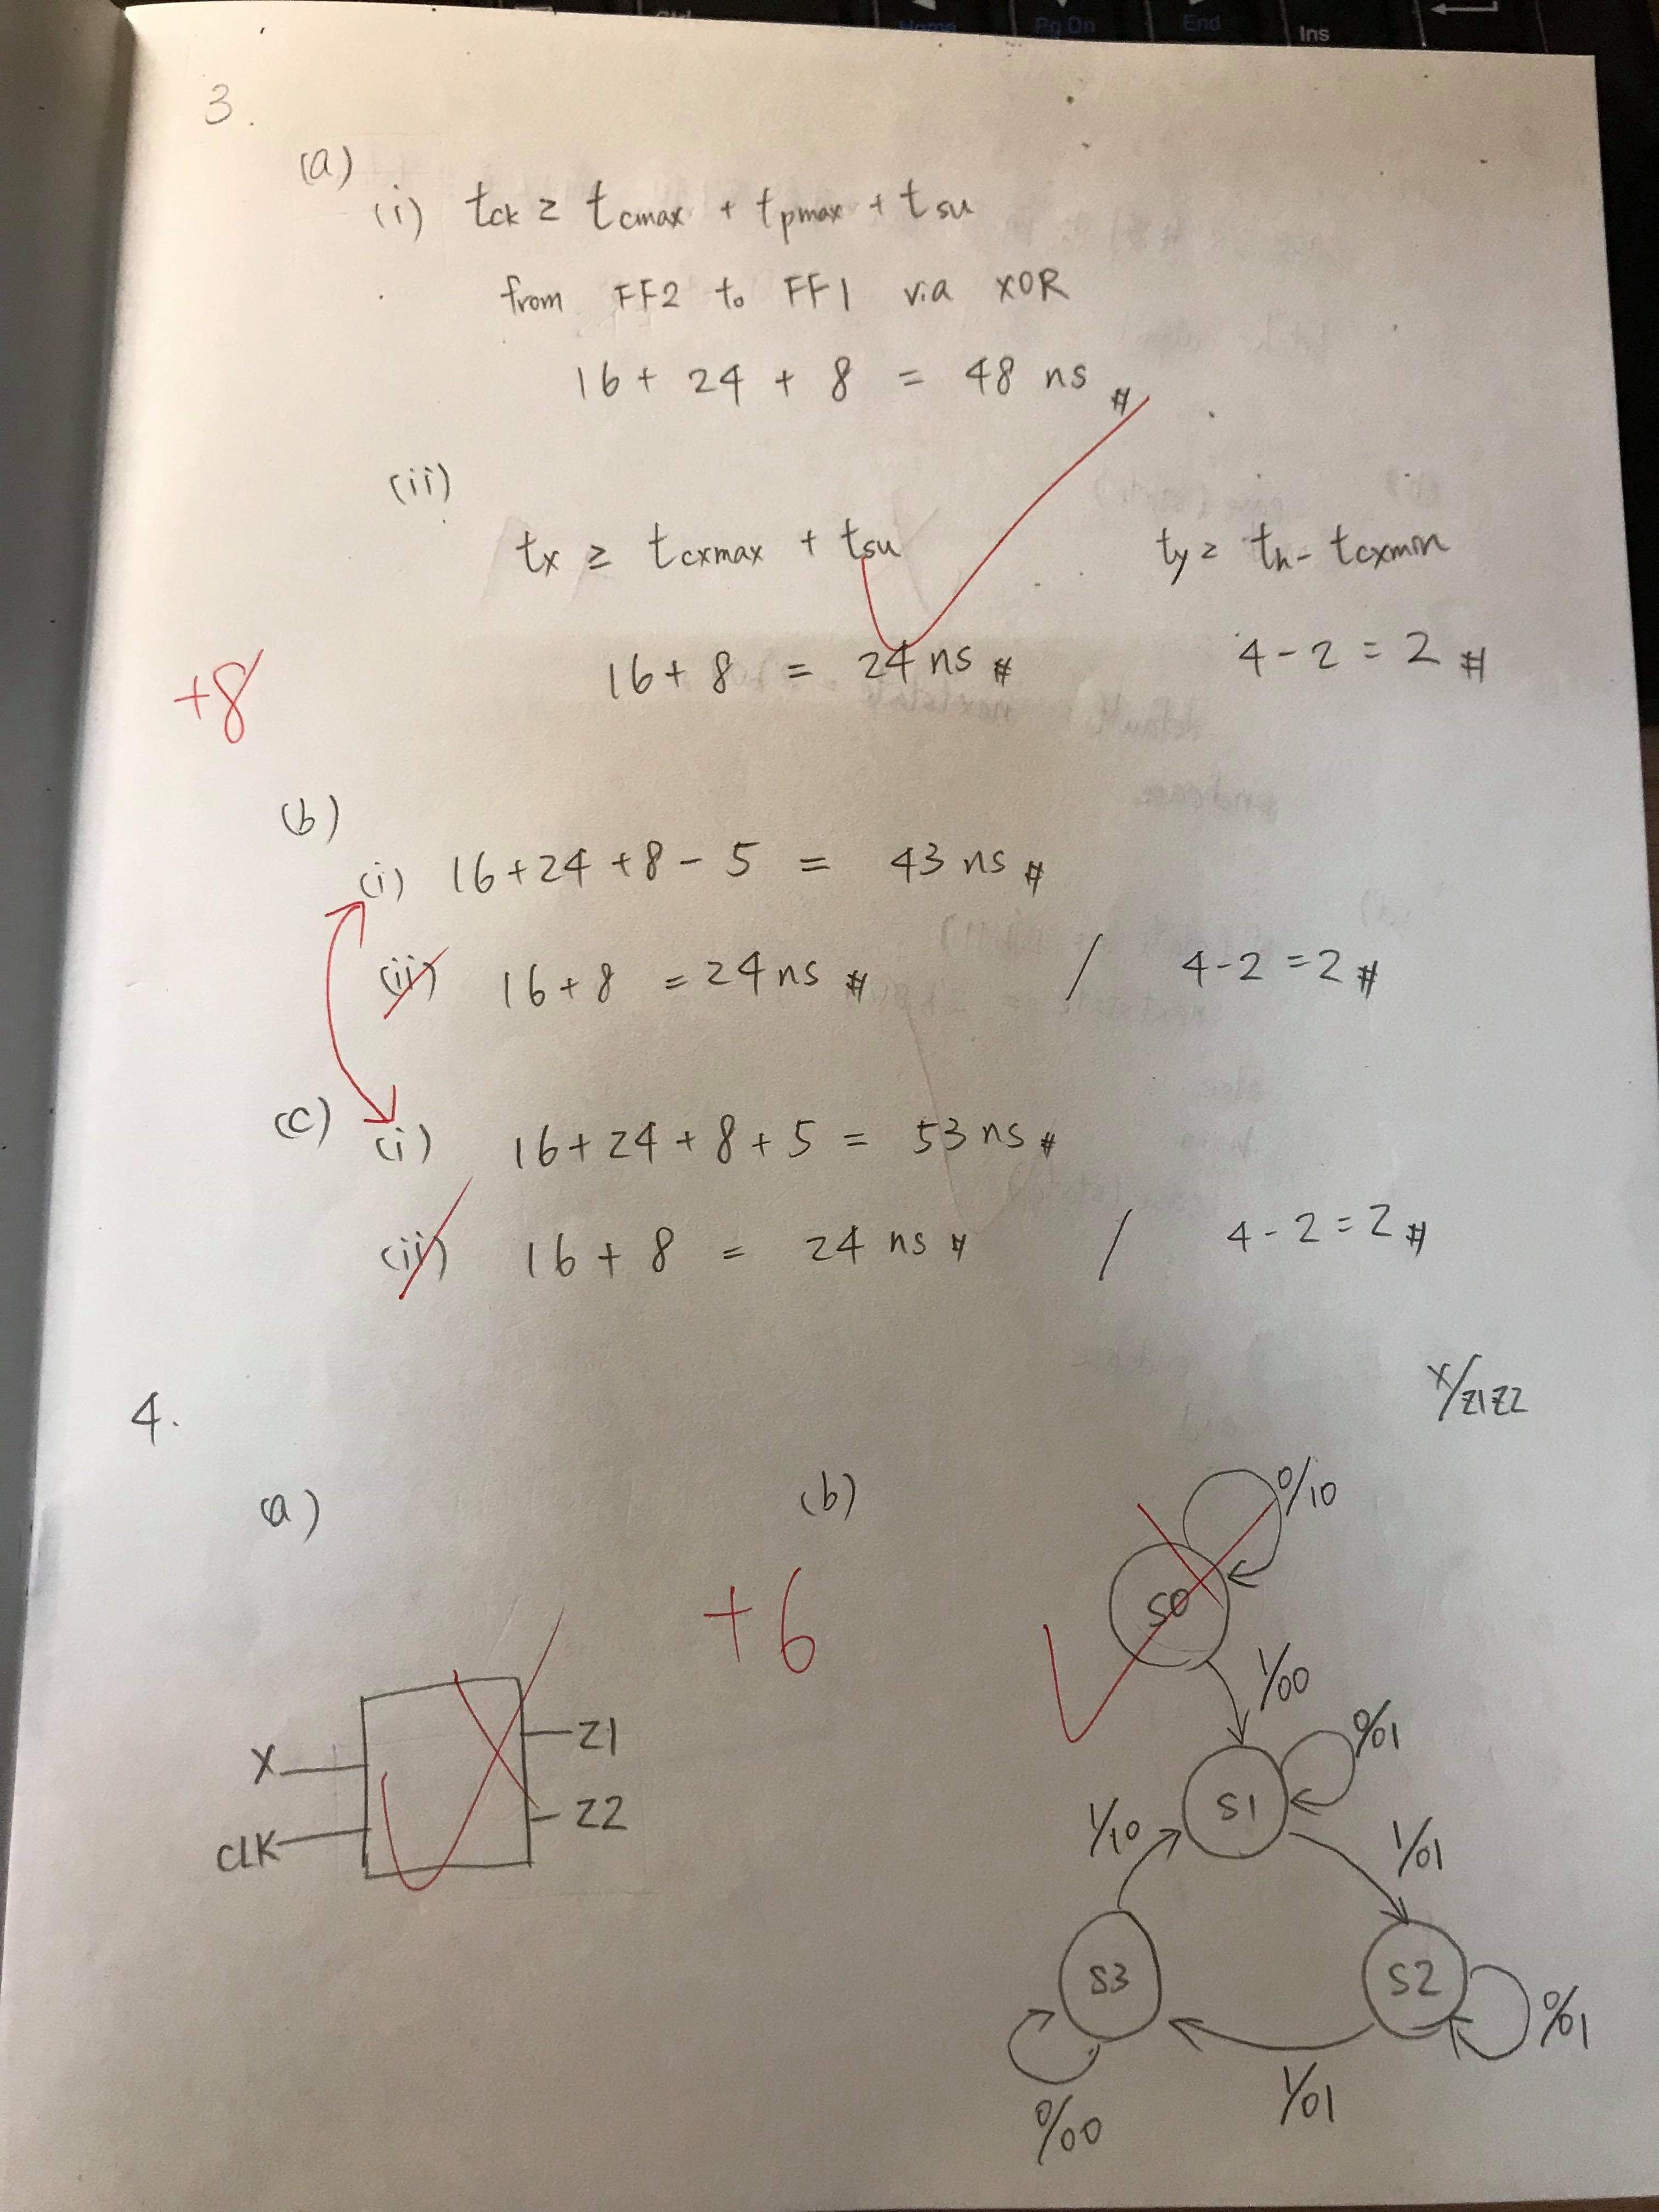 Home
Pg Dn
End
Ins
3.
(a)
(i) tck ≥ tcmax + tpmax + tsu
from FF2 to FF1 via XOR
16 + 24 + 8 = 48 ns #
(ii)
tx ≥ tcxmax + tsu    ty ≥ th - tcxmin
16 + 8 = 24 ns #    4 - 2 = 2 #
+8
(b)
(i) 16 + 24 + 8 - 5 = 43 ns #
(ii) 16 + 8 = 24 ns # / 4 - 2 = 2 #
(c) (i) 16 + 24 + 8 + 5 = 53 ns #
(ii) 16 + 8 = 24 ns # / 4 - 2 = 2 #
4.
X/Z1Z2
a)
(b)
+6
X
CLK
Z1
Z2
0/10
S0
1/00
0/01
S1
1/10
1/01
S3
S2
0/01
1/01
0/00